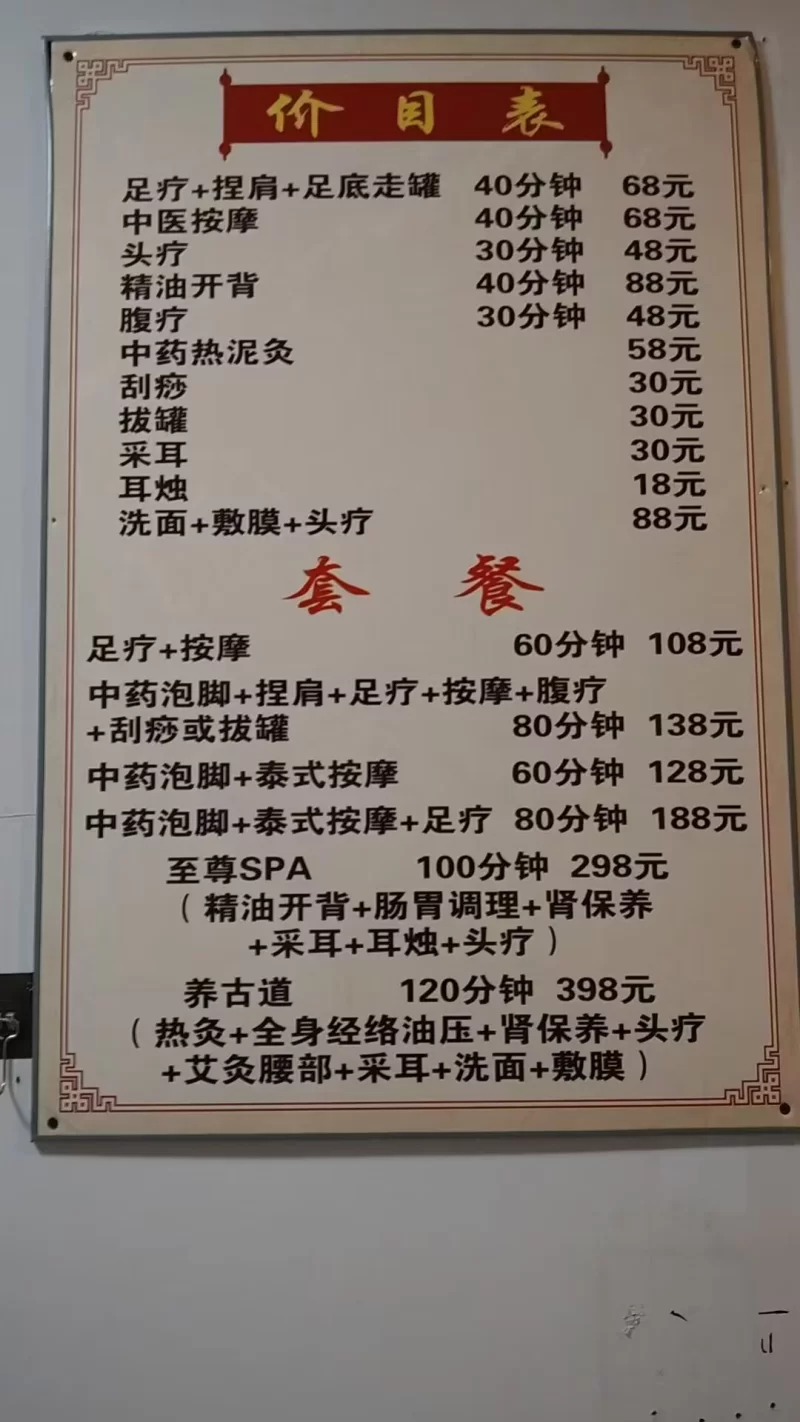 价目表
足疗+捏肩+足底走罐 40分钟 68元
中医按摩 40分钟 68元
头疗 30分钟 48元
精油开背 40分钟 88元
腹疗 30分钟 48元
中药热泥灸 58元
刮痧 30元
拔罐 30元
采耳 30元
耳烛 18元
洗面+敷膜+头疗 88元
套餐
足疗+按摩 60分钟 108元
中药泡脚+捏肩+足疗+按摩+腹疗
+刮痧或拔罐 80分钟 138元
中药泡脚+泰式按摩 60分钟 128元
中药泡脚+泰式按摩+足疗 80分钟 188元
至尊SPA 100分钟 298元
（精油开背+肠胃调理+肾保养
+采耳+耳烛+头疗）
养古道 120分钟 398元
（热灸+全身经络油压+肾保养+头疗
+艾灸腰部+采耳+洗面+敷膜）